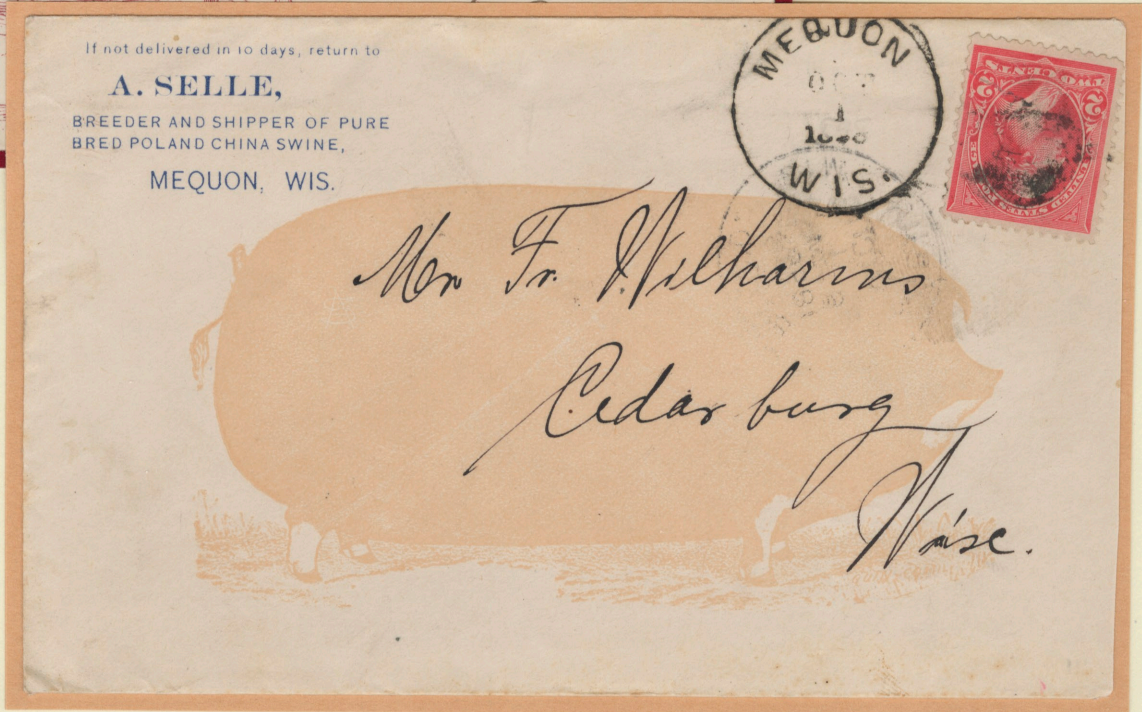 If not delivered in 10 days, return to
A. SELLE,
BREEDER AND SHIPPER OF PURE
BRED POLAND CHINA SWINE,
MEQUON, WIS.
MEQUON
OCT
1
WIS.
TWO CENTS
2 2
UNITED STATES POSTAGE
Mr Fr. Wilharms
Cedarburg
Wisc.